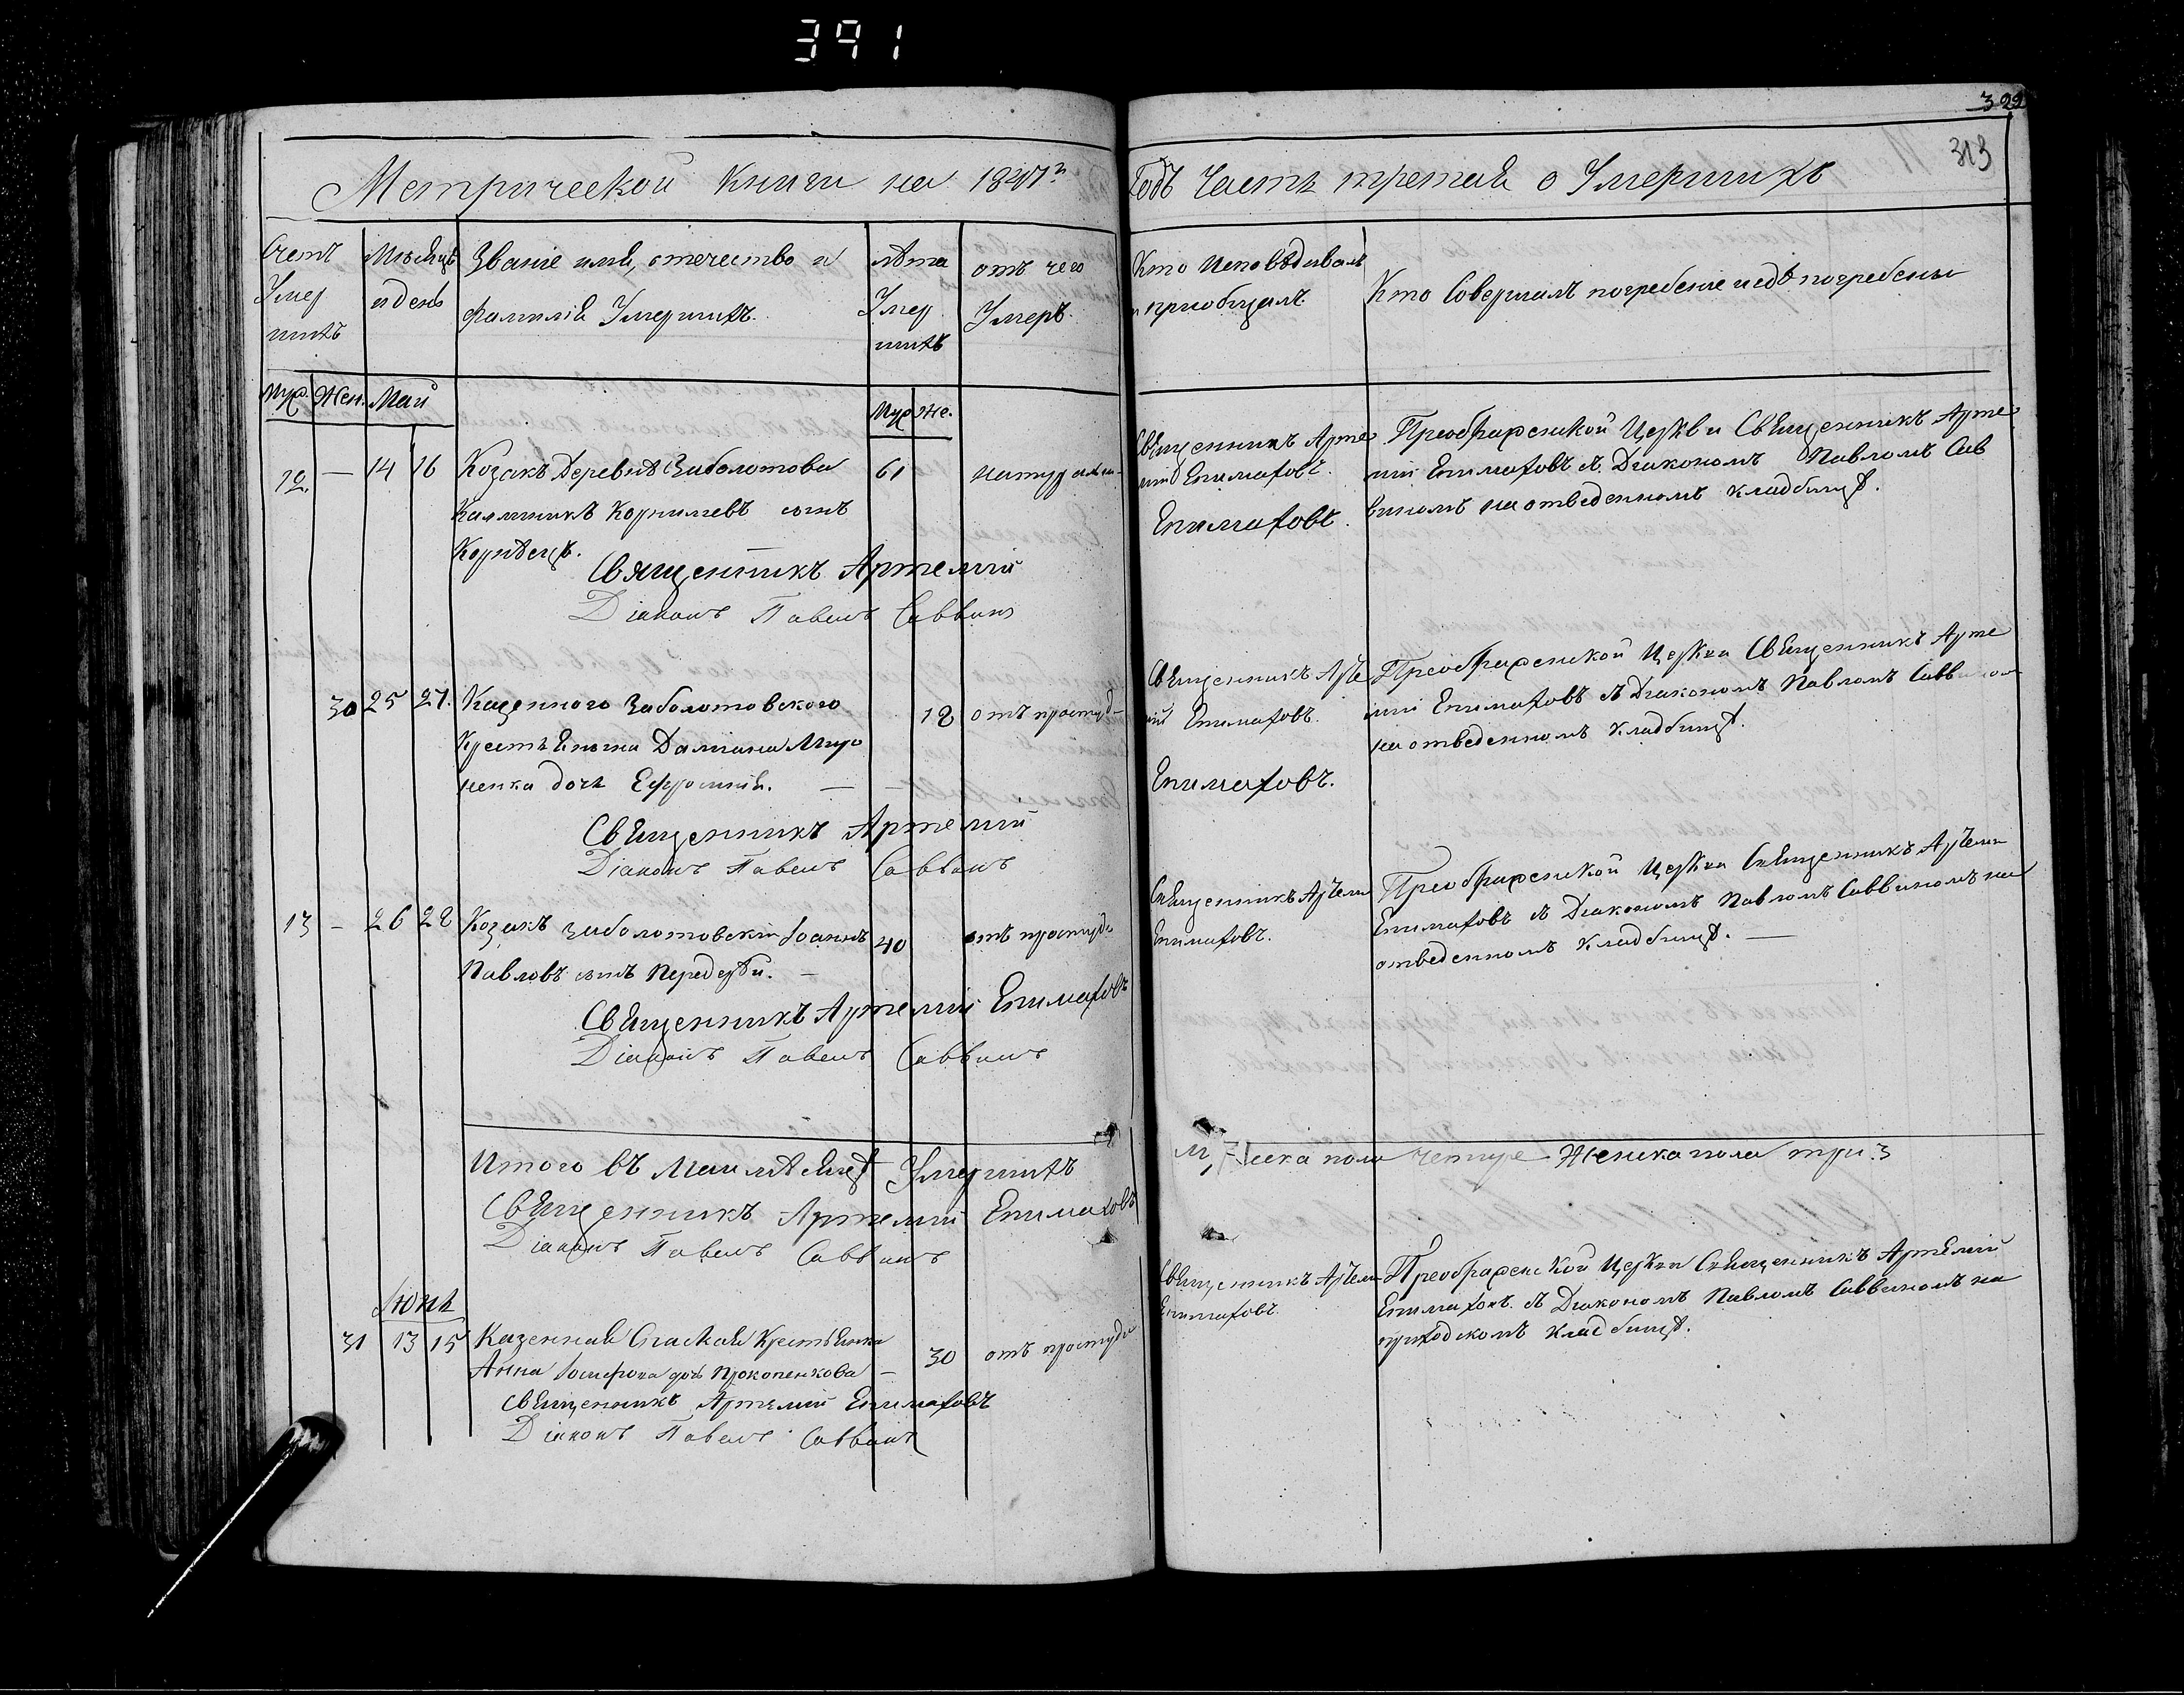 391
322
313
Метрической Книги на 1847го
Годъ Часть третья о Умершихъ
Счетъ Умершихъ
Мѣсяцъ и день
Званіе имя, отечество и
фамилія Умершихъ.
лѣта Умершихъ
отъ чего
Умеръ.
Кто Исповѣдывалъ
и приобщалъ
Кто Совершалъ погребеніе и гдѣ погребены
Муж. Жен. Май
Муж. же.
12. — 14 16 Козакъ Деревнѣ Заболотова 61
Корнилевъ сынъ
Священникъ Артемій
Діаконъ Павелъ Саввинъ
Священникъ Арте
мій Епимаховъ.
Епимаховъ.
Преображенской Церкви Священникъ Арте
мій Епимаховъ съ Диакономъ Павломъ Сав
виномъ на отведенномъ кладбищѣ.
30 25 27. Казенного Заболотовского 18 отъ простуд
Крестьянина Дамиана Миро
ненка дочь Ефросинія. —
Священникъ Артемій
Діаконъ Павелъ Саввинъ
Священникъ Арте
мій Епимаховъ.
Епимаховъ.
Преображенской Церкви Священникъ Арте
мій Епимаховъ съ Диакономъ Павломъ Саввином
на отведенномъ кладбищѣ.
13 — 26 28 Козакъ Заболотовскій Іоаннъ 40 отъ простуды
Павловъ сынъ
Священникъ Артемій Епимаховъ
Діаконъ Павелъ Саввинъ
Священникъ Артеми
Епимаховъ.
Преображенской Церкви Священникъ Артеми
Епимаховъ съ Диакономъ Павломъ Саввиномъ на
отведенномъ кладбищѣ. —
Итого въ Маи мѣсяцѣ Умершихъ
Муска пола четире Женска пола три. 3
Священникъ Артемій Епимаховъ
Діаконъ Павелъ Саввинъ
Іюнь
31 13 15 Казенная Крестьянка 30 отъ простуды
Анна дочь Прокопенкова —
Священникъ Артемій Епимаховъ
Діаконъ Павелъ Саввинъ
Священникъ Артеми
Епимаховъ
Преображенской Церкви Священникъ Артемій
Епимаховъ съ Диакономъ Павломъ Саввиномъ на
приходскомъ кладбищѣ.